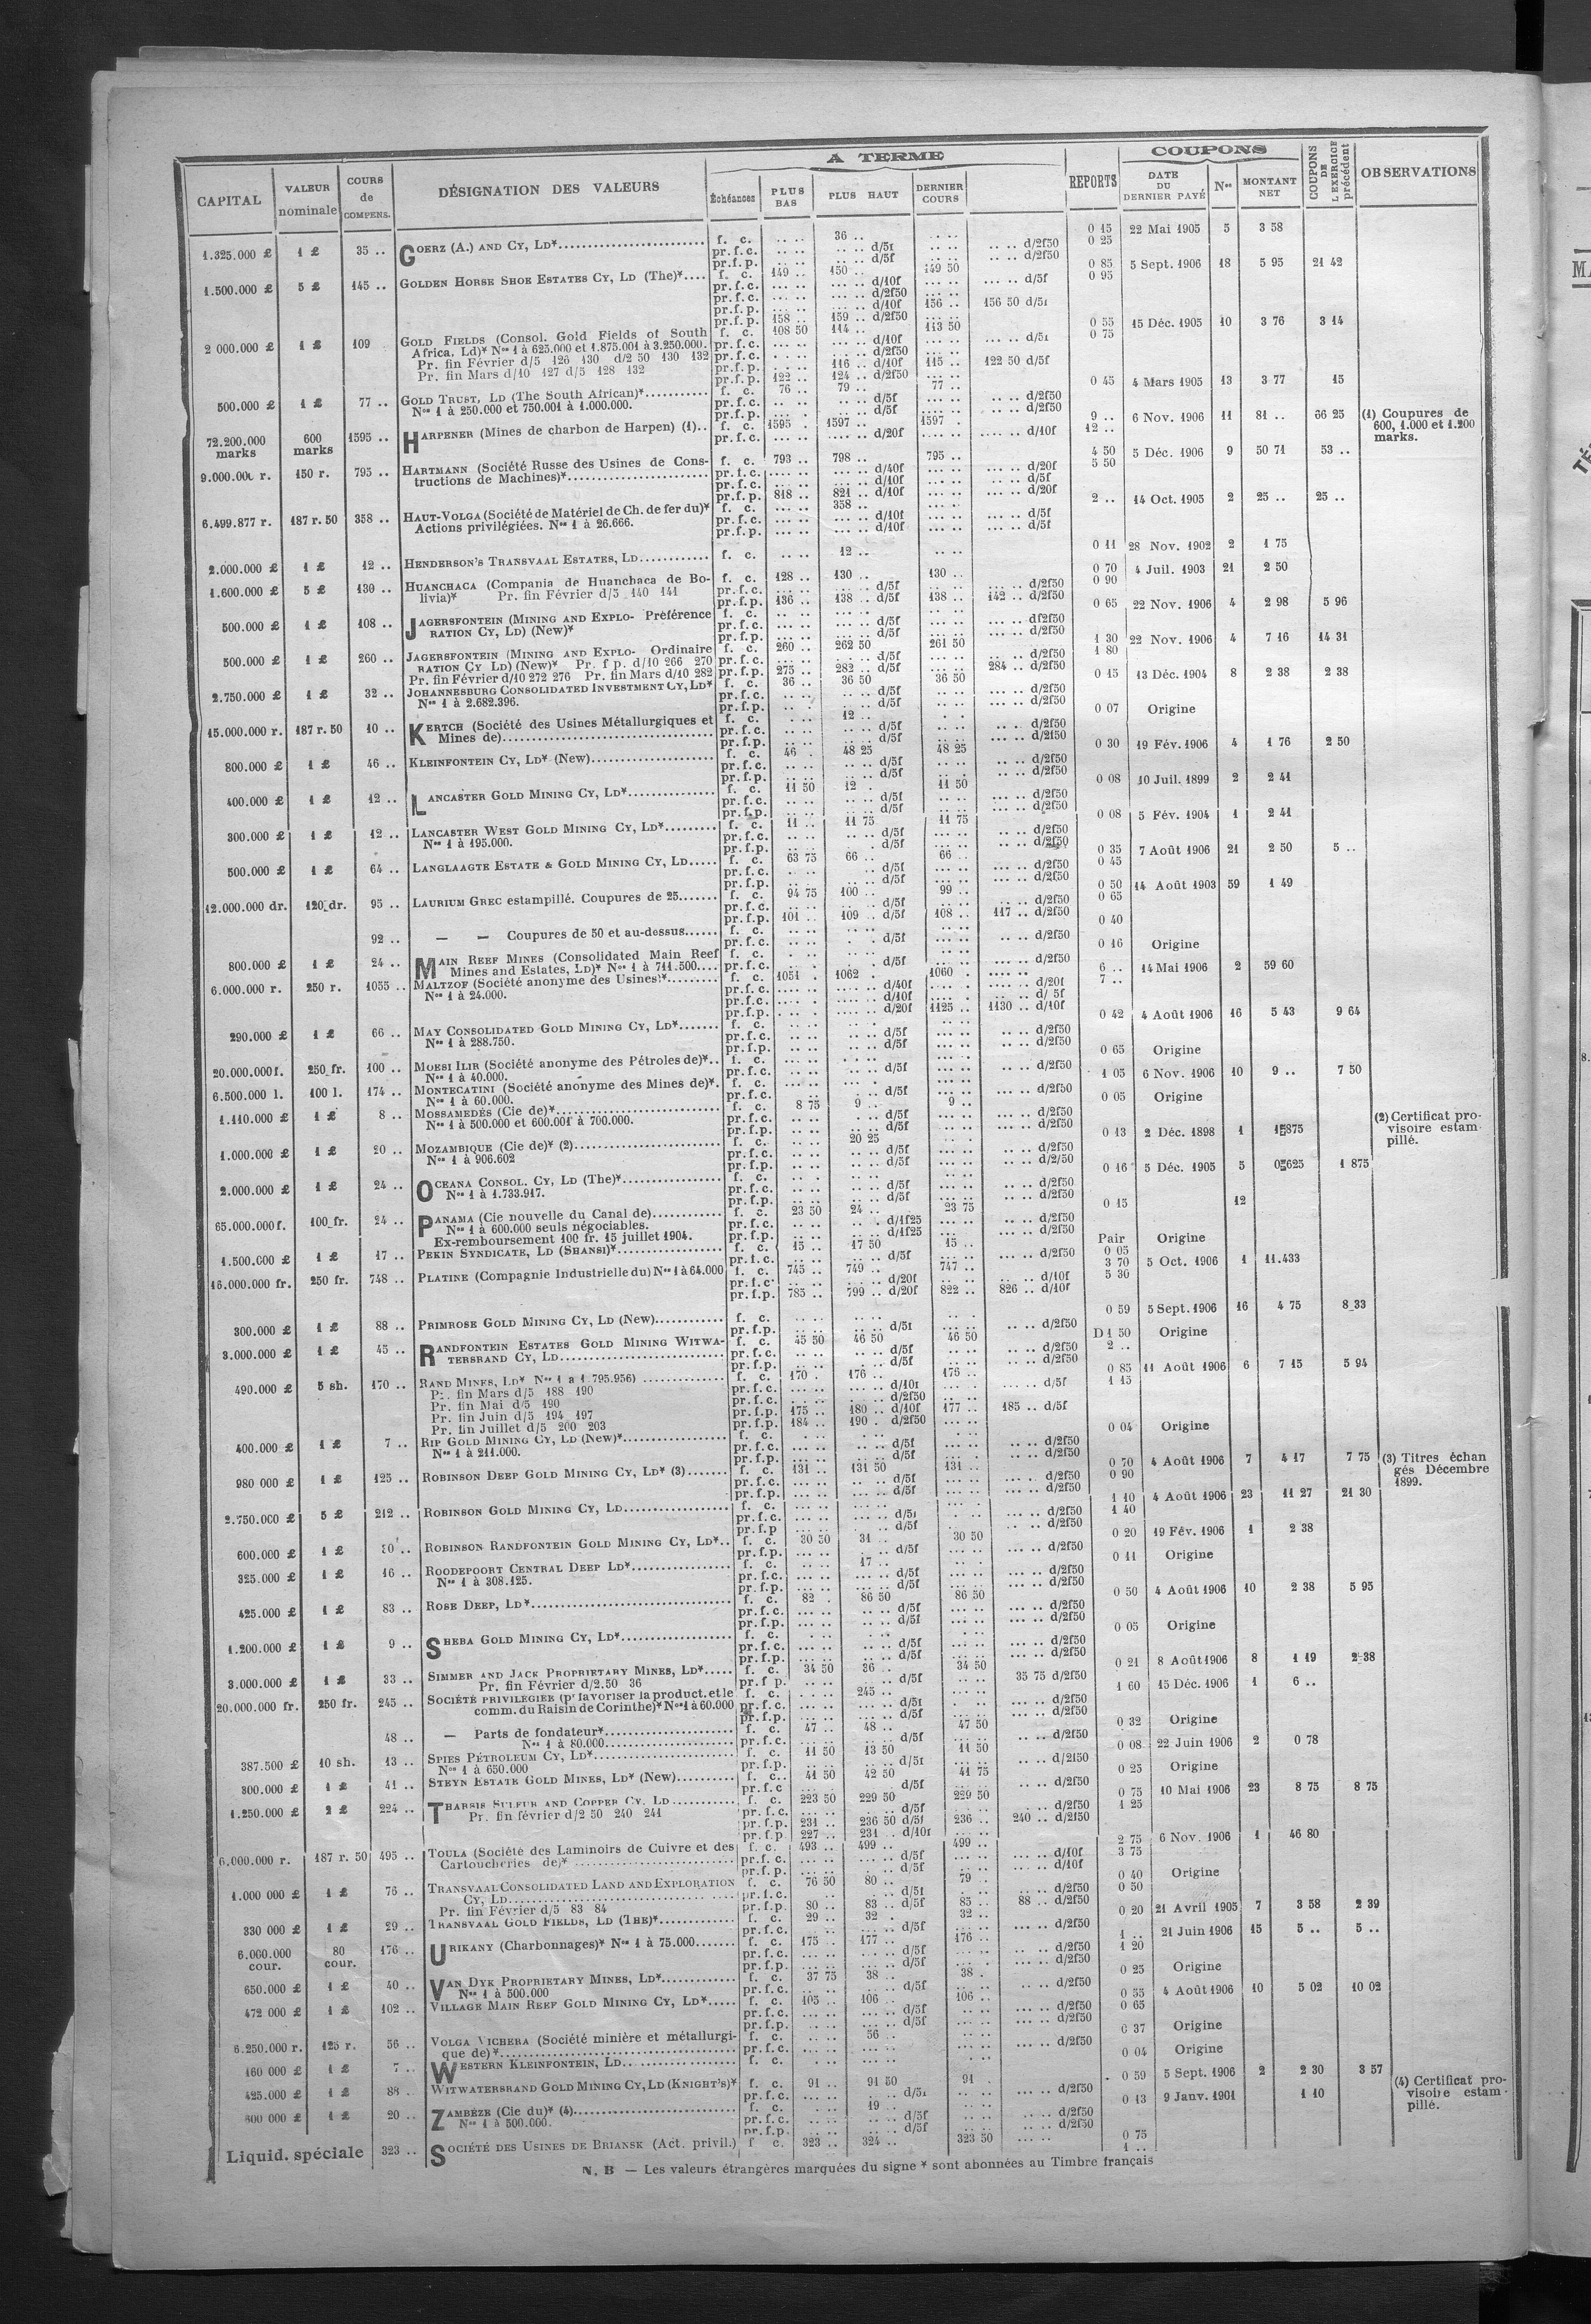 A TERME
COUPONS
CAPITAL | VALEUR nominale | COURS de COMPENS. | DÉSIGNATION DES VALEURS | Échéances | PLUS BAS | PLUS HAUT | DERNIER COURS | REPORTS | DATE DU DERNIER PAYÉ | Nos | MONTANT NET | COUPONS DE L'EXERCICE précédent | OBSERVATIONS
1.325.000 £ 1 £ 35 .. GOERZ (A.) AND CY, LD* f. c. 36 .. 0 15 22 Mai 1905 5 3 58
pr.f.c. .. .. d/5f .. .. d/2f50 0 25
pr.f.p. .. .. d/5f .. .. d/2f50
1.500.000 £ 5 £ 145 .. GOLDEN HORSE SHOE ESTATES CY, LD (The)* f. c. 149 .. 150 .. 149 50 0 85 5 Sept. 1906 18 5 95 21 42
pr.f.c. d/10f d/5f 0 95
pr.f.c. d/2f50
pr.f.p. d/10f 156 .. 156 50 d/5f
pr.f.p. 158 .. 159 .. d/2f50
2 000.000 £ 1 £ 109 GOLD FIELDS (Consol. Gold Fields of South f. c. 108 50 114 .. 113 50 0 55 15 Déc. 1905 10 3 76 3 14
Africa, Ld)* Nos 1 à 625.000 et 1.875.001 à 3.250.000. pr.f.c. d/10f d/5f 0 75
Pr. fin Février d/5 126 130 d/2 50 130 132 pr.f.c. d/2f50
Pr. fin Mars d/10 127 d/5 128 132 pr.f.p. 116 .. d/10f 115 .. 122 50 d/5f
pr.f.p. 122 .. 124 .. d/2f50
500.000 £ 1 £ 77 .. GOLD TRUST, LD (The South African)* f. c. 76 .. 79 .. 77 .. 0 45 4 Mars 1905 13 3 77 15
Nos 1 à 250.000 et 750.001 à 1.000.000. pr.f.c. d/5f d/2f50
pr.f.p. d/5f d/2f50
72.200.000 marks 600 marks 1595 .. HARPENER (Mines de charbon de Harpen) (1) f. c. 1595 . 1597 .. 1597 . 9 .. 6 Nov. 1906 11 81 .. 66 25 (1) Coupures de 600, 1.000 et 1.200 marks.
pr.f.c. d/20f d/10f 12 ..
9.000.000 r. 150 r. 795 .. HARTMANN (Société Russe des Usines de Constructions de Machines)* f. c. 793 .. 798 .. 795 .. 4 50 5 Déc. 1906 9 50 71 53 ..
pr.f.c. d/40f d/20f 5 50
pr.f.c. d/10f d/5f
pr.f.p. 818 .. 821 .. d/10f d/20f
6.499.877 r. 187 r. 50 358 .. HAUT-VOLGA (Société de Matériel de Ch. de fer du)* f. c. 358 .. 2 .. 14 Oct. 1905 2 25 .. 25 ..
Actions privilégiées. Nos 1 à 26.666. pr.f.c. d/10f d/5f
pr.f.p. d/10f d/5f
2.000.000 £ 1 £ 12 .. HENDERSON'S TRANSVAAL ESTATES, LD f. c. 12 .. 0 11 28 Nov. 1902 2 1 75
1.600.000 £ 5 £ 130 .. HUANCHACA (Compania de Huanchaca de Bolivia)* f. c. 128 .. 130 .. 130 .. 0 70 4 Juil. 1903 21 2 50
Pr. fin Février d/5 140 141 pr.f.c. d/5f d/2f50 0 90
pr.f.p. 136 .. 138 .. d/5f 138 .. 142 .. d/2f50
500.000 £ 1 £ 108 .. JAGERSFONTEIN (MINING AND EXPLORATION CY, LD) (New)* Préférence f. c. 0 65 22 Nov. 1906 4 2 98 5 96
pr.f.c. d/5f d/2f50
pr.f.p. d/5f d/2f50
500.000 £ 1 £ 260 .. JAGERSFONTEIN (MINING AND EXPLORATION CY LD) (New)* Ordinaire f. c. 260 .. 262 50 261 50 1 30 22 Nov. 1906 4 7 16 14 31
Pr. f p. d/10 266 270 pr.f.c. d/5f d/2f50 1 80
Pr. fin Février d/10 272 276 Pr. fin Mars d/10 282 pr.f.p. 275 .. 282 .. d/5f 284 .. d/2f50
2.750.000 £ 1 £ 32 .. JOHANNESBURG CONSOLIDATED INVESTMENT CY, LD* f. c. 36 .. 36 50 36 50 0 15 13 Déc. 1904 8 2 38 2 38
Nos 1 à 2.682.396. pr.f.c. d/5f d/2f50
pr.f.p. d/5f d/2f50
15.000.000 r. 187 r. 50 10 .. KERTCH (Société des Usines Métallurgiques et Mines de) f. c. 12 .. 0 07 Origine
pr.f.c. d/5f d/2f50
pr.f.p. d/5f d/2f50
800.000 £ 1 £ 46 .. KLEINFONTEIN CY, LD* (New) f. c. 46 . 48 25 48 25 0 30 19 Fév. 1906 4 1 76 2 50
pr.f.c. d/5f d/2f50
pr.f.p. d/5f d/2f50
400.000 £ 1 £ 12 .. LANCASTER GOLD MINING CY, LD* f. c. 11 50 12 . 11 50 0 08 10 Juil. 1899 2 2 41
pr.f.c. d/5f d/2f50
pr.f.p. d/5f d/2f50
300.000 £ 1 £ 12 .. LANCASTER WEST GOLD MINING CY, LD* f. c. 11 .. 11 75 11 75 0 08 5 Fév. 1904 1 2 41
Nos 1 à 195.000. pr.f.c. d/5f d/2f50
pr.f.p. d/5f d/2f50
500.000 £ 1 £ 64 .. LANGLAAGTE ESTATE & GOLD MINING CY, LD f. c. 63 75 66 .. 66 .. 0 35 7 Août 1906 21 2 50 5 ..
pr.f.c. d/5f d/2f50 0 45
pr.f.p. d/5f d/2f50
12.000.000 dr. 120 dr. 95 .. LAURIUM GREC estampillé. Coupures de 25 f. c. 94 75 100 .. 99 .. 0 50 14 Août 1903 59 1 49
pr.f.c. d/5f d/2f50 0 65
pr.f.p. 101 .. 109 .. d/5f 108 .. 117 .. d/2f50
92 .. — — Coupures de 50 et au-dessus f. c. 0 40
pr.f.c. d/5f d/2f50
800.000 £ 1 £ 24 .. MAIN REEF MINES (Consolidated Main Reef Mines and Estates, LD)* Nos 1 à 711.500 f. c. 0 16 Origine
pr.f.c. d/5f d/2f50
6.000.000 r. 250 r. 1055 .. MALTZOF (Société anonyme des Usines)* f. c. 1051 . 1062 . 1060 . 6 .. 14 Mai 1906 2 59 60
Nos 1 à 24.000. pr.f.c. d/40f d/20f 7 ..
pr.f.c. d/10f d/ 5f
pr.f.p. d/20f 1125 .. 1130 .. d/10f
290.000 £ 1 £ 66 .. MAY CONSOLIDATED GOLD MINING CY, LD* f. c. 0 42 4 Août 1906 16 5 43 9 64
Nos 1 à 288.750. pr.f.c. d/5f d/2f50
pr.f.p. d/5f d/2f50
20.000.000 f. 250 fr. 100 .. MOESI ILIR (Société anonyme des Pétroles de)* f. c. 0 65 Origine
Nos 1 à 40.000. pr.f.c. d/5f d/2f50
6.500.000 l. 100 l. 174 .. MONTECATINI (Société anonyme des Mines de)* f. c. 1 05 6 Nov. 1906 10 9 .. 7 50
Nos 1 à 60.000. pr.f.c. d/2f50
1.110.000 £ 1 £ 8 .. MOSSAMEDÈS (Cie de)* f. c. 8 75 9 .. 9 .. 0 05 Origine
Nos 1 à 500.000 et 600.001 à 700.000. pr.f.c. d/5f d/2f50
pr.f.p. d/5f d/2f50
1.000.000 £ 1 £ 20 .. MOZAMBIQUE (Cie de)* (2) f. c. 20 25 0 13 2 Déc. 1898 1 (2) Certificat provisoire estampillé.
Nos 1 à 906.602 pr.f.c. d/5f d/2f50
pr.f.p. d/5f d/2/50
2.000.000 £ 1 £ 24 .. OCEANA CONSOL. CY, LD (The)* f. c. 0 16 5 Déc. 1905 5 1 875
Nos 1 à 1.733.917. pr.f.c. d/5f d/2f50
pr.f.p. d/5f d/2f50
65.000.000 f. 100 fr. 24 .. PANAMA (Cie nouvelle du Canal de) f. c. 23 50 24 .. 23 75 0 15 12
Nos 1 à 600.000 seuls négociables. pr.f.c. d/1f25 d/2f50
Ex-remboursement 100 fr. 15 juillet 1904. pr.f.p. d/1f25 d/2f50
1.500.000 £ 1 £ 17 .. PEKIN SYNDICATE, LD (SHANSI)* f. c. 15 .. 17 50 15 .. Pair Origine
pr.f.c. d/5f d/2f50 0 05
16.000.000 fr. 250 fr. 748 .. PLATINE (Compagnie Industrielle du) Nos 1 à 64.000 f. c. 745 .. 749 .. 747 .. 3 70 5 Oct. 1906 1 11.433
pr.f.c. d/20f d/10f 5 30
pr.f.p. 785 .. 799 .. d/20f 822 .. 826 .. d/10f
300.000 £ 1 £ 88 .. PRIMROSE GOLD MINING CY, LD (New) f. c. 0 59 5 Sept. 1906 16 4 75 8 33
pr.f.p. d/5f d/2f50
3.000.000 £ 1 £ 45 .. RANDFONTEIN ESTATES GOLD MINING WITWATERSRAND CY, LD f. c. 45 50 46 50 46 50 D 1 50 Origine
pr.f.c. d/5f d/2f50 2 ..
pr.f.p. d/5f d/2f50
490.000 £ 5 sh. 170 .. RAND MINES, LD* Nos 1 à 1 795.956) f. c. 170 . 176 .. 175 .. 0 85 11 Août 1906 6 7 15 5 94
Pr. fin Mars d/5 188 190 pr.f.c. d/10f d/5f 1 15
Pr. fin Mai d/5 190 pr.f.c. d/2f50
Pr. fin Juin d/5 194 197 pr.f.p. 175 .. 180 .. d/10f 177 .. 185 .. d/5f
Pr. fin Juillet d/5 200 203 pr.f.p. 184 .. 190 . d/2f50
400.000 £ 1 £ 7 .. RIP GOLD MINING CY, LD (New)* f. c. 0 04 Origine
Nos 1 à 211.000. pr.f.c. d/5f d/2f50
pr.f.p. d/5f d/2f50
980 000 £ 1 £ 125 .. ROBINSON DEEP GOLD MINING CY, LD* (3) f. c. 131 .. 131 50 131 .. 0 70 4 Août 1906 7 4 17 7 75 (3) Titres échangés Décembre 1899.
pr.f.c. d/5f d/2f50 0 90
pr.f.p. d/5f d/2f50
2.750.000 £ 5 £ 212 .. ROBINSON GOLD MINING CY, LD f. c. 1 10 4 Août 1906 23 11 27 21 30
pr.f.c. d/5f d/2f50 1 40
pr.f.p d/5f d/2f50
600.000 £ 1 £ ROBINSON RANDFONTEIN GOLD MINING CY, LD* f. c. 30 50 31 .. 30 50 0 20 19 Fév. 1906 1 2 38
pr.f.p. d/5f d/2f50
325.000 £ 1 £ 16 .. ROODEPOORT CENTRAL DEEP LD* f. c. 17 .. 0 11 Origine
Nos 1 à 308.125. pr.f.p. d/5f d/2f50
425.000 £ 1 £ 83 .. ROSE DEEP, LD* f. c. 82 . 86 50 86 50 0 50 4 Août 1906 10 2 38 5 95
pr.f.c. d/5f d/2f50
pr.f.p. d/5f d/2f50
1.200.000 £ 1 £ 9 .. SHEBA GOLD MINING CY, LD* f. c. 0 05 Origine
pr.f.c. d/5f d/2f50
pr.f.p. d/5f d/2f50
3.000.000 £ 1 £ 33 .. SIMMER AND JACK PROPRIETARY MINES, LD* f. c. 34 50 36 .. 34 50 0 21 8 Août 1906 8 1 19 2 38
Pr. fin Février d/2.50 36 pr.f p. d/5f 35 75 d/2f50
20.000.000 fr. 250 fr. 245 .. SOCIÉTÉ PRIVILÉGIÉE (pr favoriser la product. et le f. c. 245 .. 1 60 15 Déc. 1906 1 6 ..
comm. du Raisin de Corinthe)* Nos 1 à 60.000 pr.f.c. d/5f d/2f50
pr.f.p. d/5f d/2f50
48 .. — Parts de fondateur* f. c. 47 .. 48 .. 47 50 0 32 Origine
Nos 1 à 80.000 pr.f.c. d/5f d/2f50
387.500 £ 10 sh. 13 .. SPIES PÉTROLEUM CY, LD* f. c. 11 50 13 50 11 50 0 08 22 Juin 1906 2 0 78
Nos 1 à 650.000 pr.f.p. d/5f d/2f50
300.000 £ 1 £ 41 .. STEYN ESTATE GOLD MINES, LD* (New) f. c. 41 50 42 50 41 75 0 25 Origine
pr.f.c d/5f d/2f50
1.250.000 £ 2 £ 224 .. THARSIS SULFUR AND COPPER CY. LD f. c. 223 50 229 50 229 50 0 75 10 Mai 1906 23 8 75 8 75
Pr. fin février d/2 50 240 241 pr.f.c. d/5f d/2f50 1 25
pr.f.p. 231 .. 236 50 d/5f 236 .. 240 .. d/2f50
pr.f.p 227 .. 231 .. d/10f
6.000.000 r. 187 r. 50 495 .. TOULA (Société des Laminoirs de Cuivre et des Cartoucheries de)* f. c. 493 .. 499 .. 499 .. 2 75 6 Nov. 1906 1 46 80
pr.f.c. d/5f d/10f 3 75
pr.f.p. d/5f d/10f
1.000 000 £ 1 £ 76 .. TRANSVAAL CONSOLIDATED LAND AND EXPLORATION CY, LD f. c. 76 50 80 .. 79 .. 0 40 Origine
pr.f.c. d/5f d/2f50 0 50
Pr. fin Février d/5 83 84 pr.f.p. 80 .. 83 .. d/5f 85 .. 88 .. d/2f50
330 000 £ 1 £ 29 .. TRANSVAAL GOLD FIELDS, LD (THE)* f. c. 29 .. 32 . 32 .. 0 20 21 Avril 1905 7 3 58 2 39
pr.f.c. d/5f d/2f50
6.000.000 cour. 80 cour. 176 .. URIKANY (Charbonnages)* Nos 1 à 75.000 f. c. 175 .. 177 .. 176 .. 1 .. 21 Juin 1906 15 5 .. 5 ..
pr.f.c. d/5f d/2f50 1 20
pr.f.p. d/5f d/2f50
650.000 £ 1 £ 40 .. VAN DYK PROPRIETARY MINES, LD* f. c. 37 75 38 .. 38 . 0 25 Origine
Nos 1 à 500.000 pr.f.c. d/5f d/2f50
472 000 £ 1 £ 102 .. VILLAGE MAIN REEF GOLD MINING CY, LD* f. c. 105 .. 106 .. 106 .. 0 55 4 Août 1906 10 5 02 10 02
pr.f.c. d/5f d/2f50 0 65
pr.f.p. d/5f d/2f50
6.250.000 r. 125 r. 56 .. VOLGA VICHERA (Société minière et métallurgique de)* f. c. 56 .. 0 37 Origine
pr.f.c. d/2f50
160 000 £ 1 £ 7 .. WESTERN KLEINFONTEIN, LD f. c. 0 04 Origine
425.000 £ 1 £ 88 .. WITWATERSRAND GOLD MINING CY, LD (KNIGHT'S)* f. c. 91 .. 91 50 91 . 0 59 5 Sept. 1906 2 2 30 3 57
pr.f.c. d/5f d/2f50
600 000 £ 1 £ 20 .. ZAMBÈZE (Cie du)* (4) f. c. 19 .. 0 13 9 Janv. 1901 1 10 (4) Certificat provisoire estampillé.
Nos 1 à 500.000. pr.f.c. d/5f d/2f50
pr.f.p. d/5f d/2f50
Liquid. spéciale 323 .. SOCIÉTÉ DES USINES DE BRIANSK (Act. privil.) f c. 323 .. 324 .. 323 50 0 75
1 ..
N. B — Les valeurs étrangères marquées du signe * sont abonnées au Timbre français